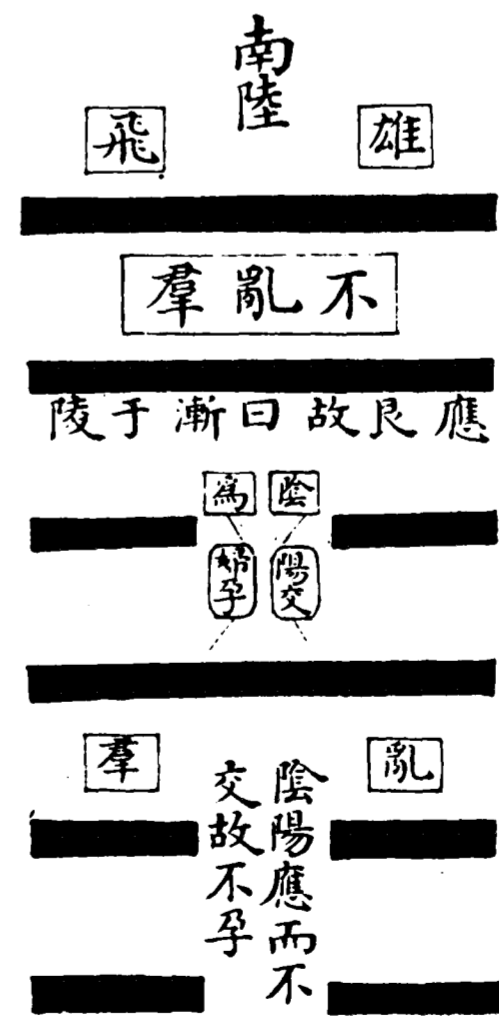 南陸
雄飛
不亂羣
應艮故曰漸于陵
陰陽交
為婦孕
亂羣
陰陽應而不
交故不孕